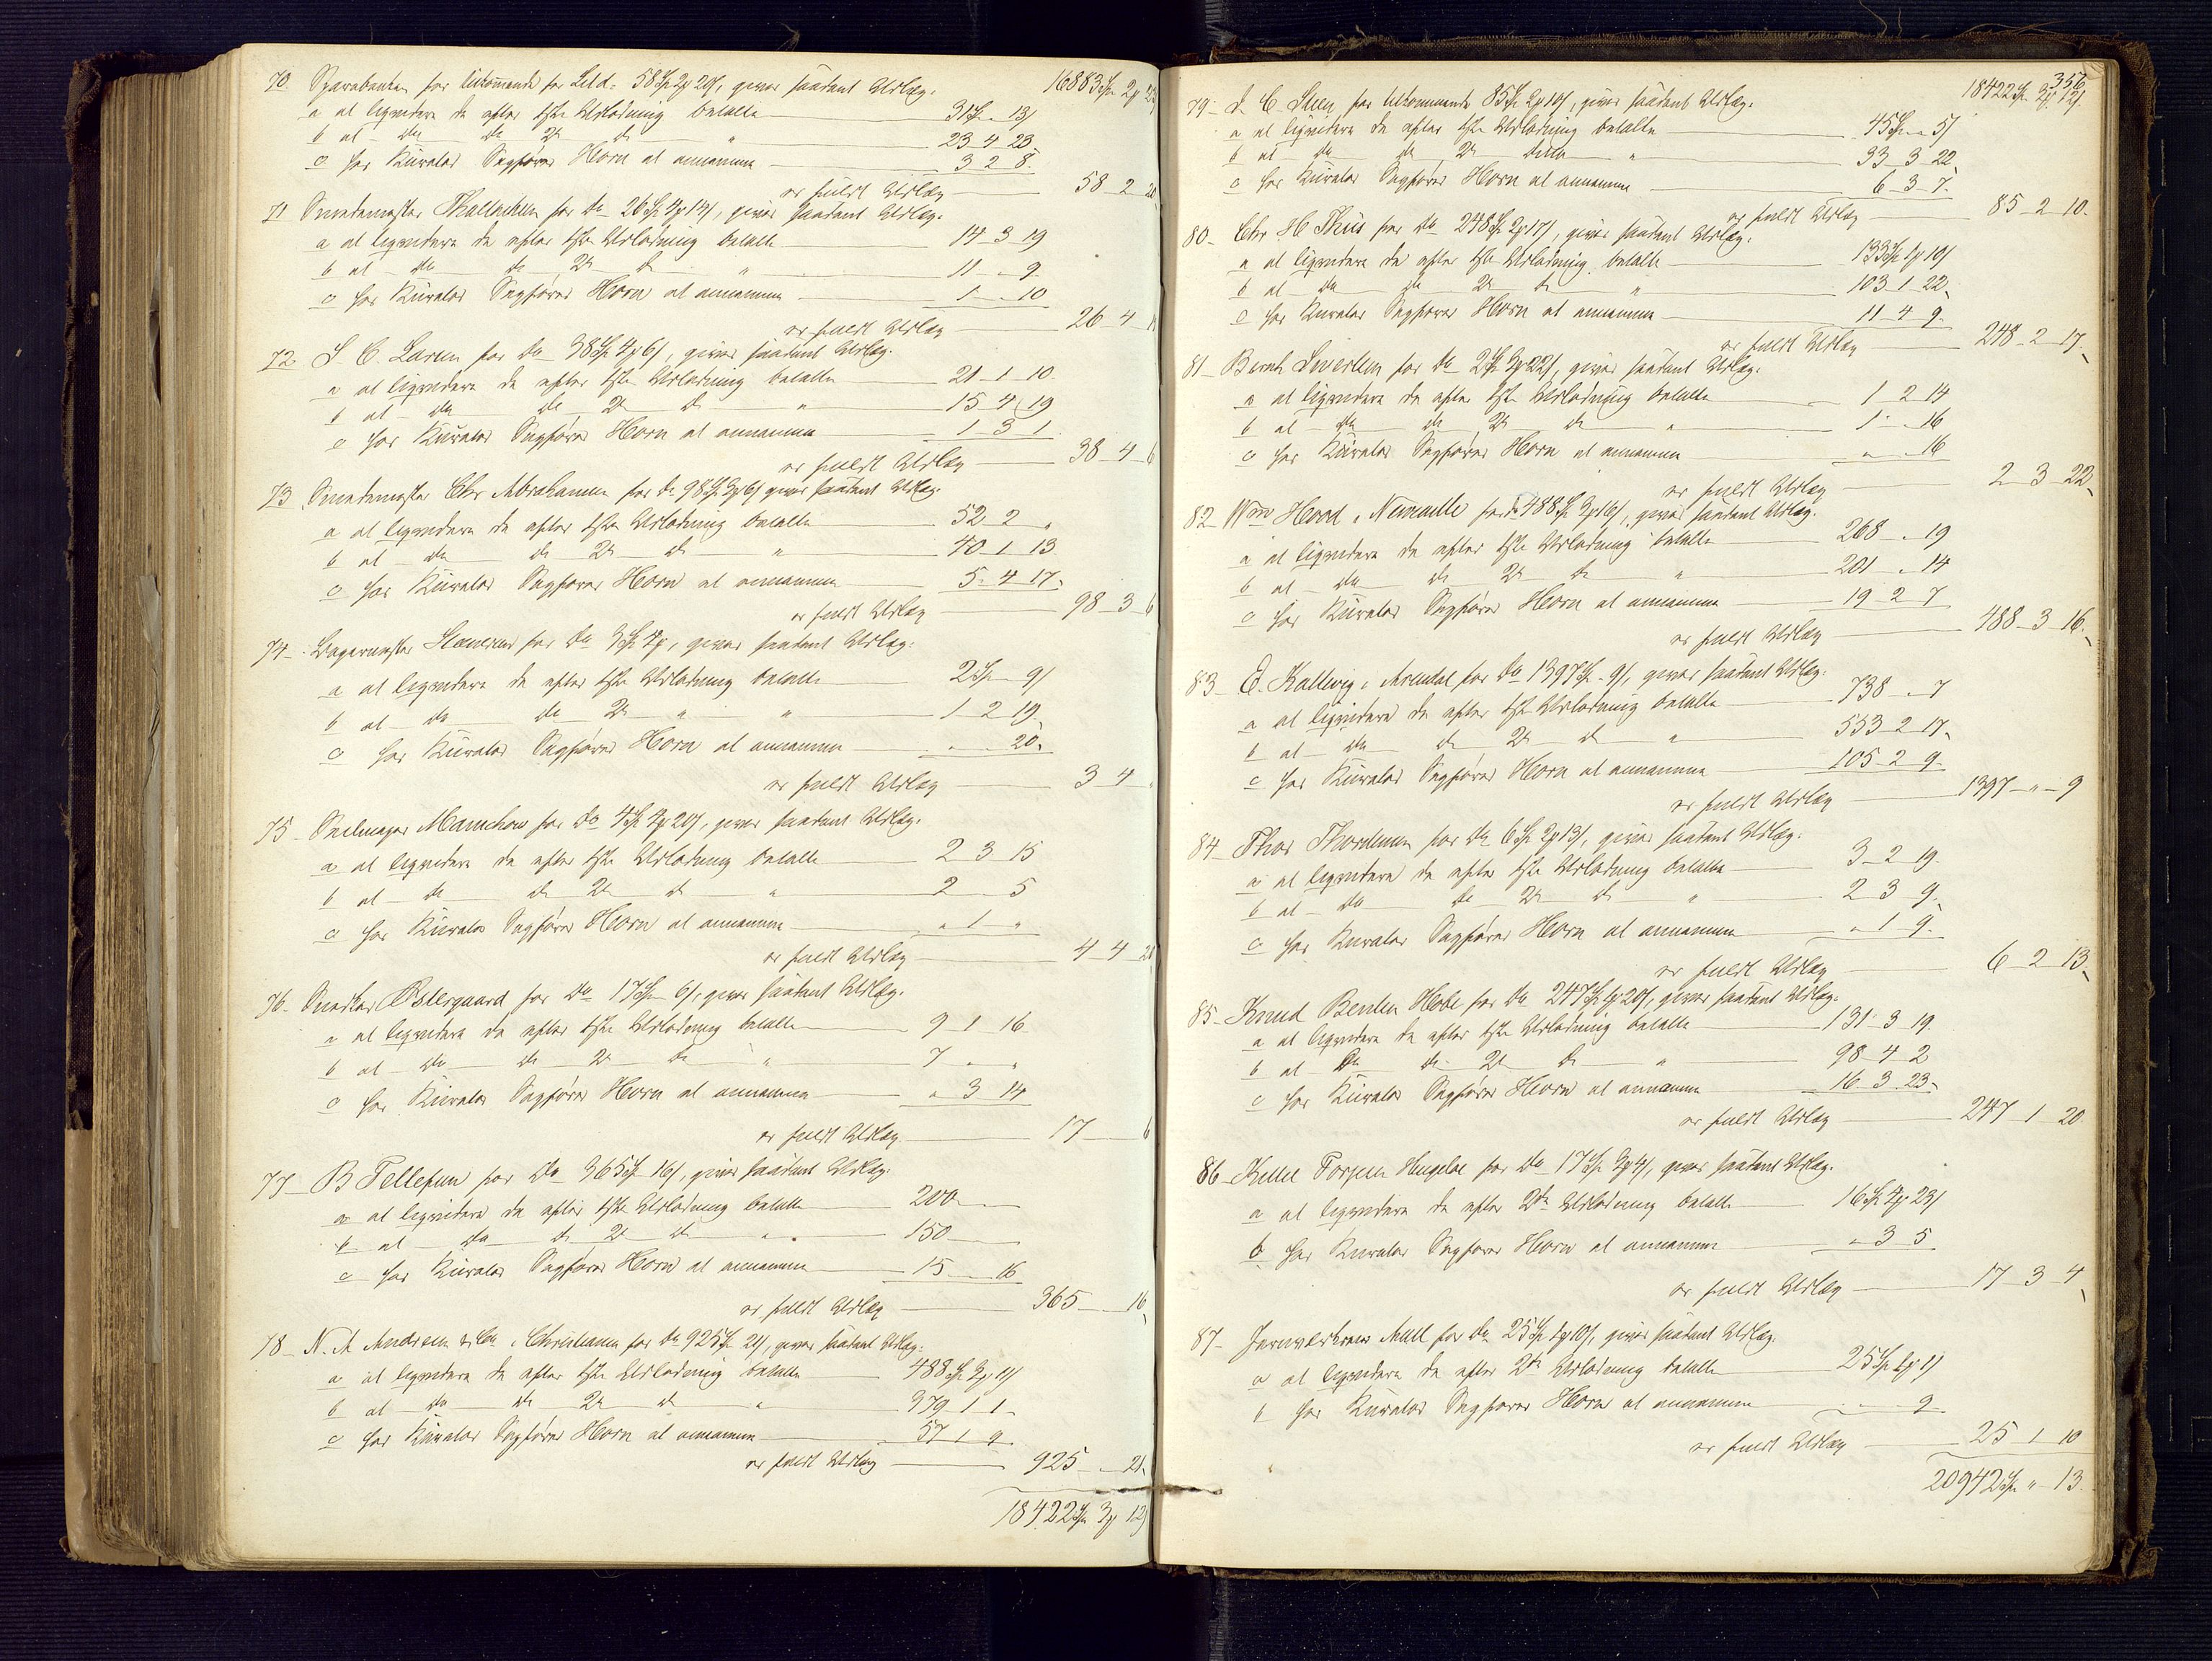 16883 Sp 2
70 Sparebanken for tilkommende for Lild. 58 Sp 2 20/, gives saadant Udlæg.
a at liqvidere de efter 1ste Udlodning betalte 31 Sp " 13/
b at do do 2de do " 23 4 23
c hos Kurator Sagfører Horn at annamme 3 2 8.
er fuldt Udlæg 58 2 20
71 Smedemester for do 26 Sp 4 14/, gives saadant Udlæg.
a at liqvidere de efter 1ste Udlodning betalte 14 3 19
b at do do 2de do " 11 " 9
c hos Kurator Sagfører Horn at annamme 1 " 10
er fuldt Udlæg 26 4
72 S. C. Larsen for do 38 Sp 4 6/, gives saadant Udlæg.
a at liqvidere de efter 1ste Udlodning betalte 21 1 10
b at do do 2de do " 15 4 19
c hos Kurator Sagfører Horn at annamme 1 3 1
er fuldt Udlæg 38 4 6
73 Smedemester Chr Abrahamsen for do 98 Sp 3 6/ gives saadant Udlæg.
a at liqvidere de efter 1ste Udlodning betalte 52 2 "
b at do do 2de do " 40 1 13
c hos Kurator Sagfører Horn at annamme 5 4 17
er fuldt Udlæg 98 3 6
74 Bagermester for do 3 Sp 4, gives saadant Udlæg.
a at liqvidere de efter 1ste Udlodning betalte 2 Sp " 9/
b at do do 2de " " 1 2 19
c hos Kurator Sagfører Horn at annamme " " 20
er fuldt Udlæg 3 4
75 Seilmager for do 4 Sp 4 20/, gives saadant Udlæg.
a at liqvidere de efter 1ste Udlodning betalte 2 3 15
b at do do 2de do " 2 " 5
c hos Kurator Sagfører Horn at annamme " 1 "
er fuldt Udlæg 4 4 20
76 Snedker Østergaard for do 17 Sp " 6/, gives saadant Udlæg.
a at liqvidere de efter 1ste Udlodning betalte 9 1 16
b at do do 2de do " 7 " "
c hos Kurator Sagfører Horn at annamme " 3 14
er fuldt Udlæg 17 6
77 B Tellefsen for do 365 Sp 16/, gives saadant Udlæg.
a at liqvidere de efter 1ste Udlodning betalte 200
b at do do 2de do " 150
c hos Kurator Sagfører Horn at annamme 15 " 16
er fuldt Udlæg 365 " 16
78 N. A Andresen & Co i Christiania for do 925 Sp 21/, gives saadant Udlæg.
a at liqvidere de efter 1ste Udlodning betalte 488 Sp 3 11/
b at do do 2de do " 379 1 1
c hos Kurator Sagfører Horn at annamme 57 1 9
er fuldt Udlæg 925 " 21
18422 Sp 3 12/
356
18422 Sp 3 12/
79 for tilkommende 85 Sp 2 10/, gives saadant Udlæg.
a at liqvidere de efter 1ste Udlodning betalte 45 Sp " 5/
b at do do 2de ditto " 33 3 22
c hos Kurator Sagfører Horn at annamme 6 3 7.
er fuldt Udlæg 85 2 10.
80 Chr H Thiis for do 248 Sp 2 17/, gives saadant Udlæg.
a at liqvidere de efter 1ste Udlodning betalte 133 Sp 1 10/
b at do do 2de do " 103 1 22
c hos Kurator Sagfører Horn at annamme 11 4 9.
er fuldt Udlæg 248 2 17
81 Bernh Sivertsen for do 2 Sp 3 22/, gives saadant Udlæg.
a at liqvidere de efter 1ste Udlodning betalte 1 2 14
b at do do 2de do " 1 " 16
c hos Kurator Sagfører Horn at annamme " " 16
er fuldt Udlæg 2 3 22
82 Wm Hood i Newcastle for do 488 Sp 3 16/, gives saadant Udlæg.
a at liqvidere de efter 1ste Udlodning betalte 268 " 19
b at do do 2de do " 201 " 14
c hos Kurator Sagfører Horn at annamme 19 2 7
er fuldt Udlæg 488 3 16
83 E. Kallevig i Arendal for do 1397 Sp " 9/, gives saadant Udlæg.
a at liqvidere de efter 1ste Udlodning betalte 738 " 7
b at do do 2de do " 553 2 17
c hos Kurator Sagfører Horn at annamme 105 2 9
er fuldt Udlæg 1397 " 9
84 Thor Thordsen for do 6 Sp 2 13/, gives saadant Udlæg.
a at liqvidere de efter 1ste Udlodning betalte 3 2 19
b at do do 2de do " 2 3 9
c hos Kurator Sagfører Horn at annamme " 1 9
er fuldt Udlæg 6 2 13
85 Knud Bentsen Hobe for do 247 Sp 1 20/, gives saadant Udlæg.
a at liqvidere de efter 1ste Udlodning betalte 131 3 19
b at do do 2de do " 98 4 2
c hos Kurator Sagfører Horn at annamme 16 3 23
er fuldt Udlæg 247 1 20
86 for do 17 Sp 3 4/, gives saadant Udlæg.
a at liqvidere de efter 2de Udlodning betalte 16 Sp 4 23/
b hos Kurator Sagfører Horn at annamme " 3 5
er fuldt Udlæg 17 3 4
87 Jernværkens for do 25 Sp 1 10/, gives saadant Udlæg.
a at liqvidere de efter 2de Udlodning betalte 25 Sp 1 1/
b hos Kurator Sagfører Horn at annamme " " 9
er fuldt Udlæg 25 1 10
20942 Sp " 13